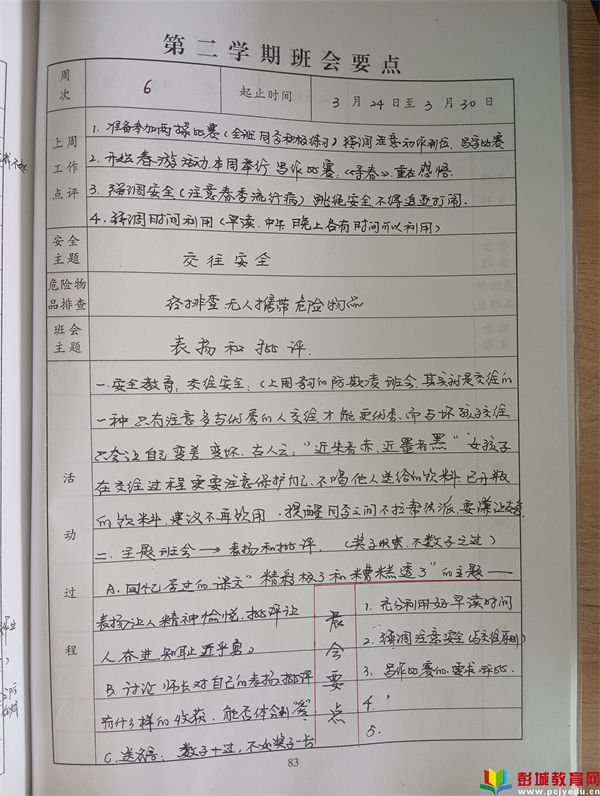 第二学期班会要点
周次 6 起止时间 3月24日至3月30日
上周工作点评
1. 准备参加两操比赛(全班同学积极练习)强调注意动作到位,
2. 开始春游活动.本周举行 写作比赛,《寻春》重在感悟.
3. 强调安全(注意春季流行病)跳绳安全不得追逐打闹.
4. 强调时间利用(早读.中午 晚上各有时间可以利用)
安全主题 交往安全
危险物品排查 经排查无人携带危险物品
班会主题 表扬和批评.
活动过程
一.安全教育:交往安全:(上周的防欺凌班会.其实就是交往的
一种 只有注意多与优秀的人交往才能更优秀.而与坏孩子交往
只会让自己变差 变坏.古人云:"近朱者赤,近墨者黑"女孩子
在交往过程更要注意保护自己.不喝他人送给的饮料.已开瓶
的饮料.建议不再饮用.提醒同学之间不拉帮结派.要谦让
二.主题班会→表扬和批评.(奖子.不数子过)
A.回忆学过的课文"精彩极了和糟糕透了"的主题——
表扬让人精神愉悦.批评让
人奋进.知耻近乎勇。
B.讨论 师长对自己的表扬批评
有什么样的收获.能否体会到爱
C.送名言:数子十过,不如奖子一长
晨会要点
1.充分利用好早读时间
2.强调注意安全
3.写作比赛的要求
4.
5.
83
彭城教育网
www.pcjyedu.cn